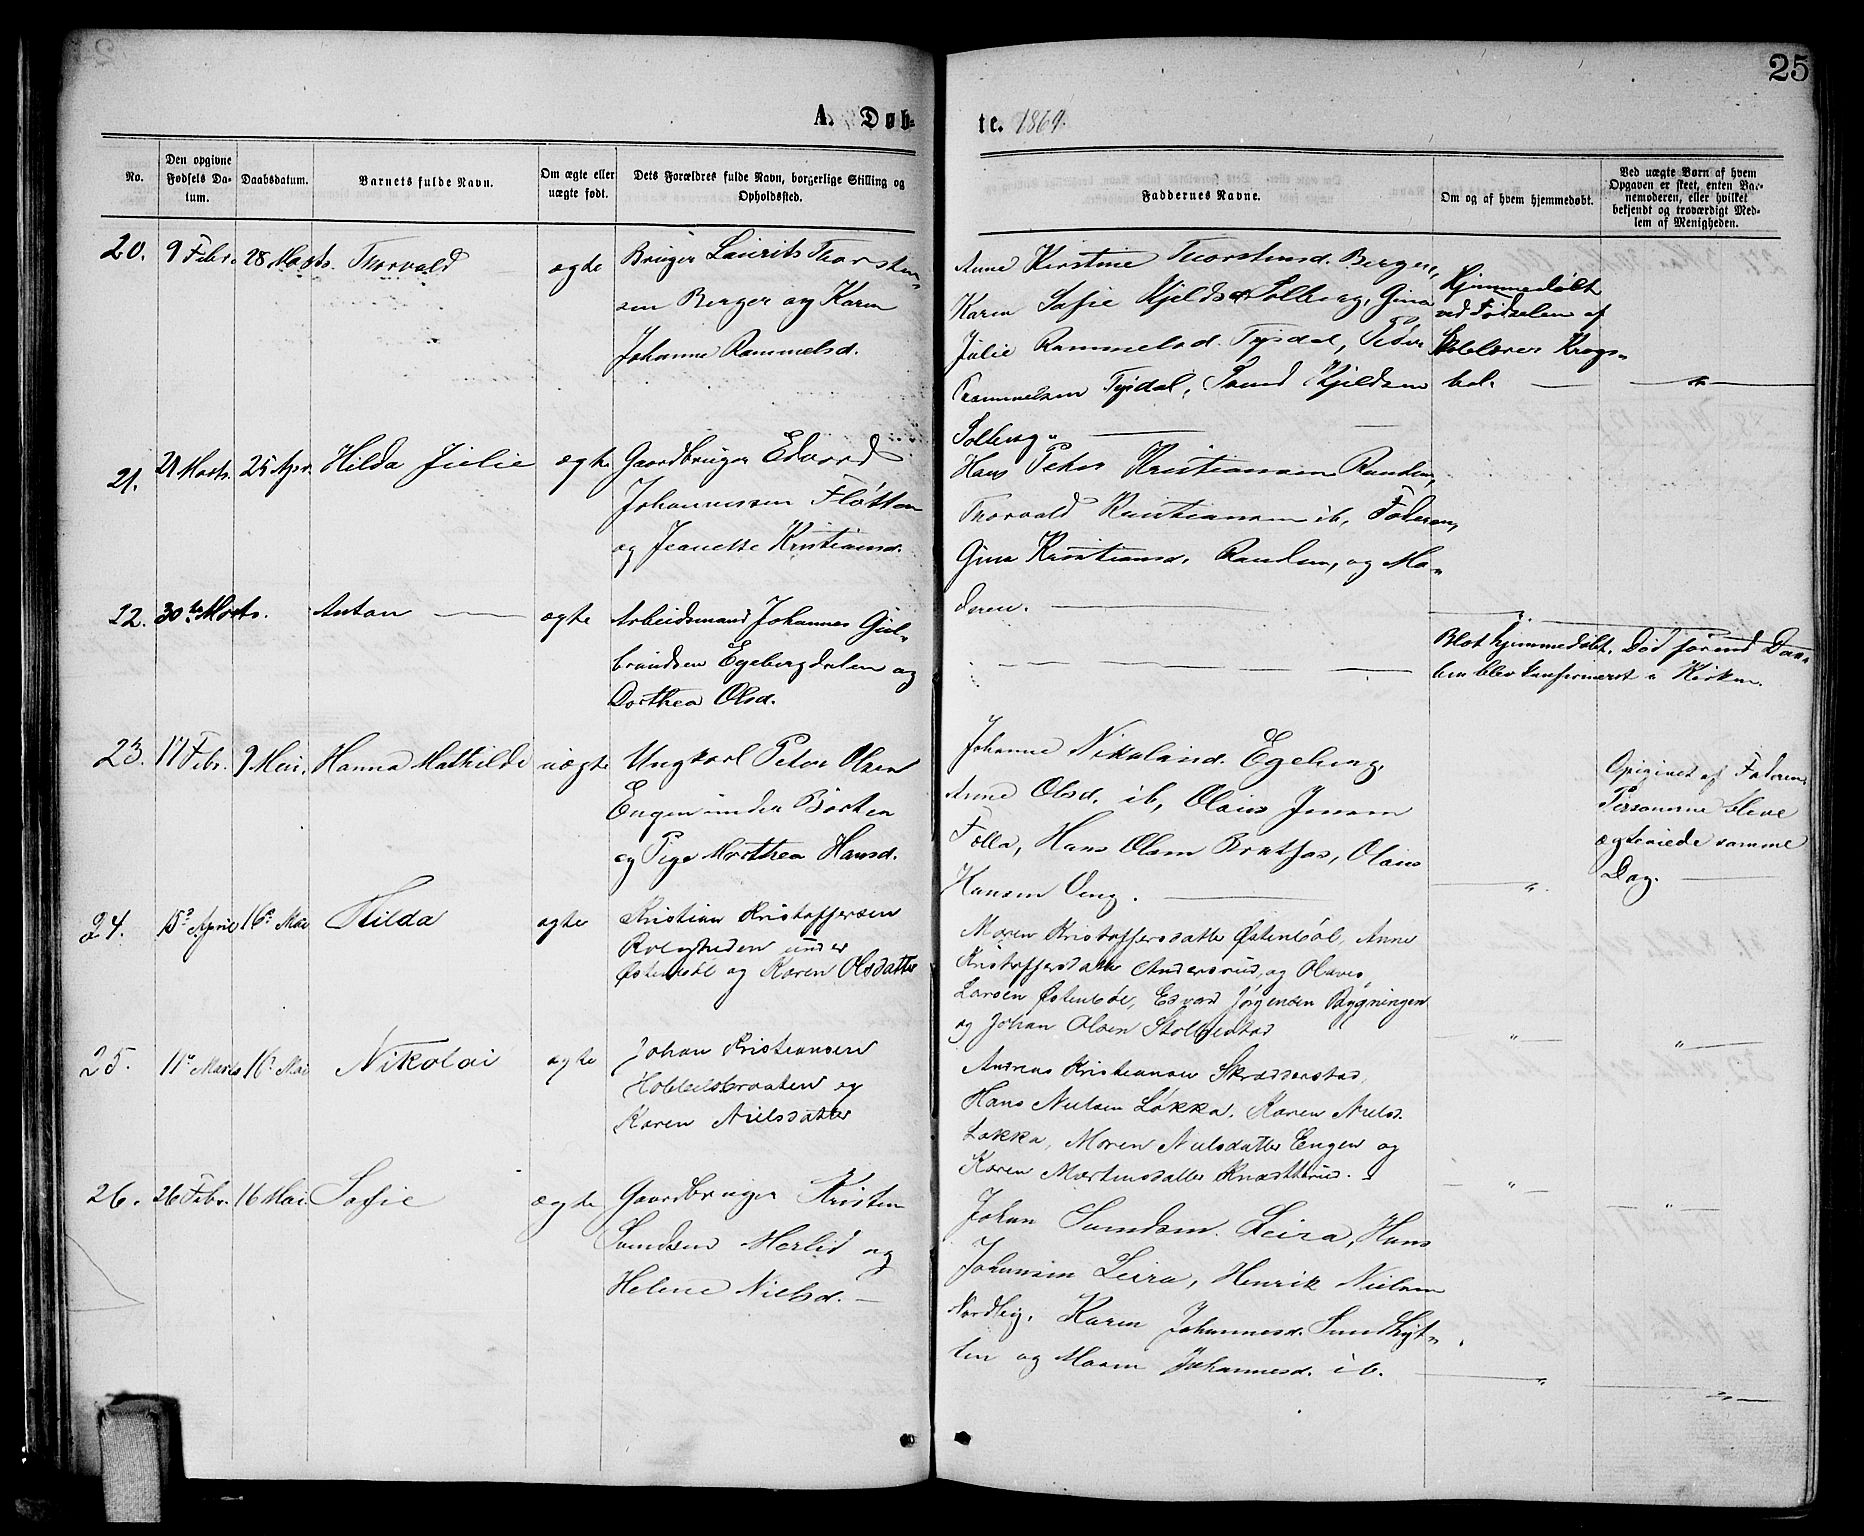 25
A. Døb-
te. 1869.
No.
Den opgivne
Fødsels Da-
tum.
Daabsdatum.
Barnets fulde Navn.
Om ægte eller
uægte født.
Dets Forældres fulde Navn, borgerlige Stilling og
Opholdssted.
Faddernes Navne.
Om og af hvem hjemmedøbt.
Ved uægte Børn af hvem
Opgaven er skeet, enten Bar-
nemoderen, eller hvilket
bekjendt og troværdigt Med-
lem af Menigheden.
20. 9 Febr. 28 Marts. Thorvald ægte
Bruger Laurits Thorsten-
sen Berger og Karen
Johanne Rammelsd.
Anne Kirstine Thorstensd. Berger,
Karen Sofie Kjeldsd. Solberg, Gina
Julie Rammelsd. Tysdal, Peder
Rammelsen Tysdal, Svend Kjeldsen
Solberg.
Hjemmedøbt
ved Fødselen af
Skolelærer Krogs-
bøl.
21. 21 Marts. 25 Apr. Hilda Julie ægte
Gaardbruger Edvard
Johannessen Fløtten
og Jeanette Kristiansd.
Hans Peter Kristiansen Randen,
Thorvald Kristiansen ib, Faderen,
Gina Kristiansd. Randen, og Mo-
deren.
22. 30te Marts. Anton ægte
Arbeidsmand Johannes Gul-
brandsen Egebergdalen og
Dorthea Olsd.
Blot hjemmedøbt. Død førend Daa-
ben blev konfirmeret i Kirken.
23. 17 Febr. 9 Mai. Hanna Mathilde uægte
Ungkarl Peter Olsen
Engen under Børten
og Pige Marthea Hansd.
Johanne Nikolaisd. Egeberg,
Anne Olsd. ib, Olaus Jensen
Folla, Hans Olsen Bratfos, Olaus
Hansen Eng.
Opgivet af Faderen.
Personerne bleve
ægteviede samme
Dag.
24. 15de April 16de Mai Hilda ægte
Kristian Kristoffersen
Roligheden under
Østenbøl og Karen Olsdatter
Maren Kristoffersdatter Østenbøl, Anne
Kristoffersdatter Andersrud, og Olaves
Larsen Østenbøl, Edvard Jørgensen Bygningen
og Johan Olsen Stolpestad
25. 11te Marts 16de Mai Nikolai ægte
Johan Kristiansen
Hobbelsbraaten og
Karen Nielsdatter
Andreas Kristiansen Skrædderstad,
Hans Nielsen Løkka, Karen Nielsd.
Løkka, Maren Nielsdatter Engen og
Karen Martinsdatter Knatterud.
26. 26 Febr. 16 Mai Sofie ægte
Gaardbruger Kristen
Svendsen Merlid og
Helene Nielsd.
Johan Svendsen Leira, Hans
Johansen Leira, Henrik Nielsen
Nordby, Karen Johannesd. Sandhyt-
ten og Maren Johannesd. ib.